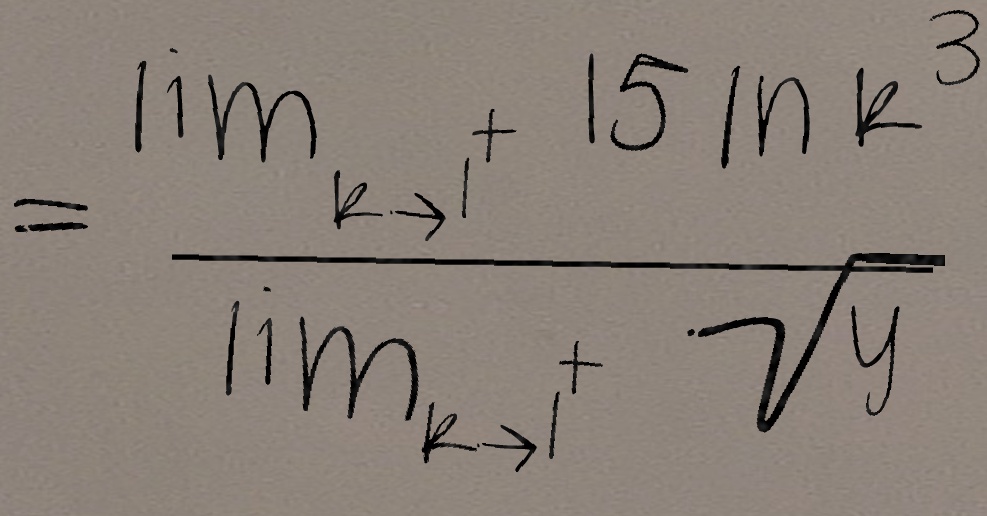 = \frac{\lim_{k \to 1^+} 15 \ln k^3}{\lim_{k \to 1^+} \sqrt{y}}